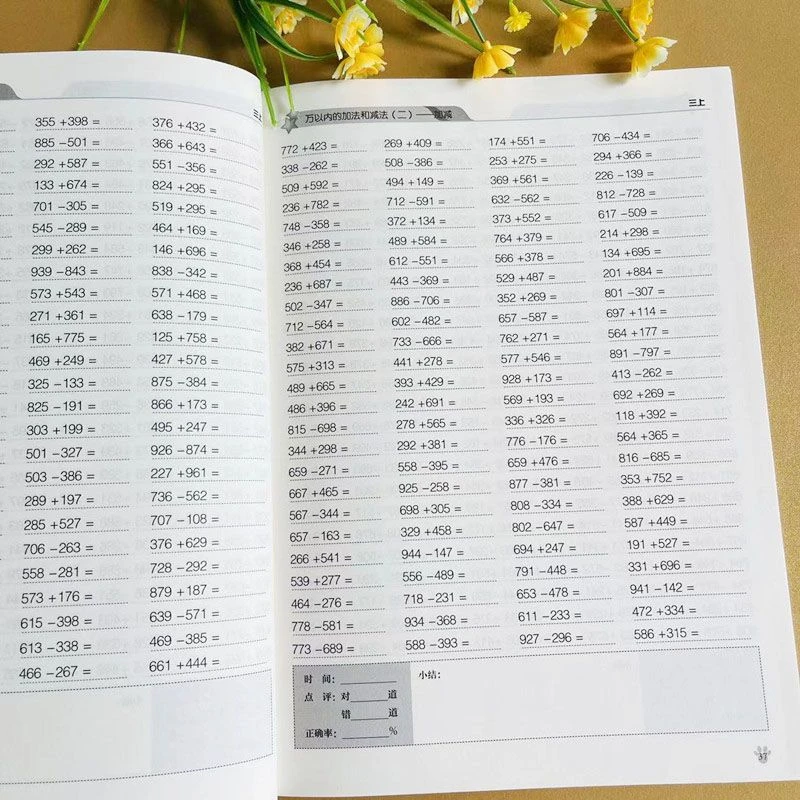 三上
355 +398 = 376 +432 =
885 −501 = 366 +643 =
292 +587 = 551 −356 =
133 +674 = 824 +295 =
701 −305 = 519 +295 =
545 −289 = 464 +169 =
299 +262 = 146 +696 =
939 −843 = 838 −342 =
573 +543 = 571 +468 =
271 +361 = 638 −179 =
165 +775 = 125 +758 =
469 +249 = 427 +578 =
325 −133 = 875 −384 =
825 −191 = 866 +173 =
303 +199 = 495 +247 =
501 −327 = 926 −874 =
503 −386 = 227 +961 =
289 +197 = 736 −562 =
285 +527 = 707 −108 =
706 −263 = 376 +629 =
558 −281 = 728 −292 =
573 +176 = 879 +187 =
615 −398 = 639 −571 =
613 −338 = 469 −385 =
466 −267 = 661 +444 =
万以内的加法和减法（二）——加减 三上
772 +423 = 269 +409 = 174 +551 = 706 −434 =
338 −262 = 508 −386 = 253 +275 = 294 +366 =
509 +592 = 494 +149 = 369 +561 = 226 −139 =
236 +782 = 712 −591 = 632 −562 = 812 −728 =
748 −358 = 372 +134 = 373 +552 = 617 −509 =
346 +258 = 489 +584 = 764 +379 = 214 +298 =
368 +454 = 612 −551 = 566 +378 = 134 +695 =
236 +687 = 443 −369 = 529 +487 = 201 +884 =
502 −347 = 886 −706 = 352 +269 = 801 −307 =
712 −564 = 602 −482 = 657 −587 = 697 +114 =
382 +671 = 733 −666 = 762 +271 = 564 +177 =
575 +313 = 441 +278 = 577 +546 = 891 −797 =
489 +665 = 393 +429 = 928 +173 = 413 −262 =
486 +396 = 242 +691 = 569 +193 = 692 +269 =
815 −698 = 278 +565 = 336 +326 = 118 +392 =
344 +298 = 292 +381 = 776 −176 = 564 +365 =
659 −271 = 558 −395 = 659 +476 = 816 −685 =
667 +465 = 925 −258 = 877 −381 = 353 +752 =
567 −344 = 698 +305 = 808 −334 = 388 +629 =
657 −163 = 329 +458 = 802 −647 = 587 +449 =
266 +541 = 944 −147 = 694 +247 = 191 +527 =
539 +277 = 556 −489 = 791 −448 = 331 +696 =
464 −276 = 718 −231 = 653 −478 = 941 −142 =
778 −581 = 934 −368 = 611 −233 = 472 +334 =
773 −689 = 588 −393 = 927 −296 = 586 +315 =
时 间：________ 小结：
点 评：对_____道
错_____道
正确率：______%
37